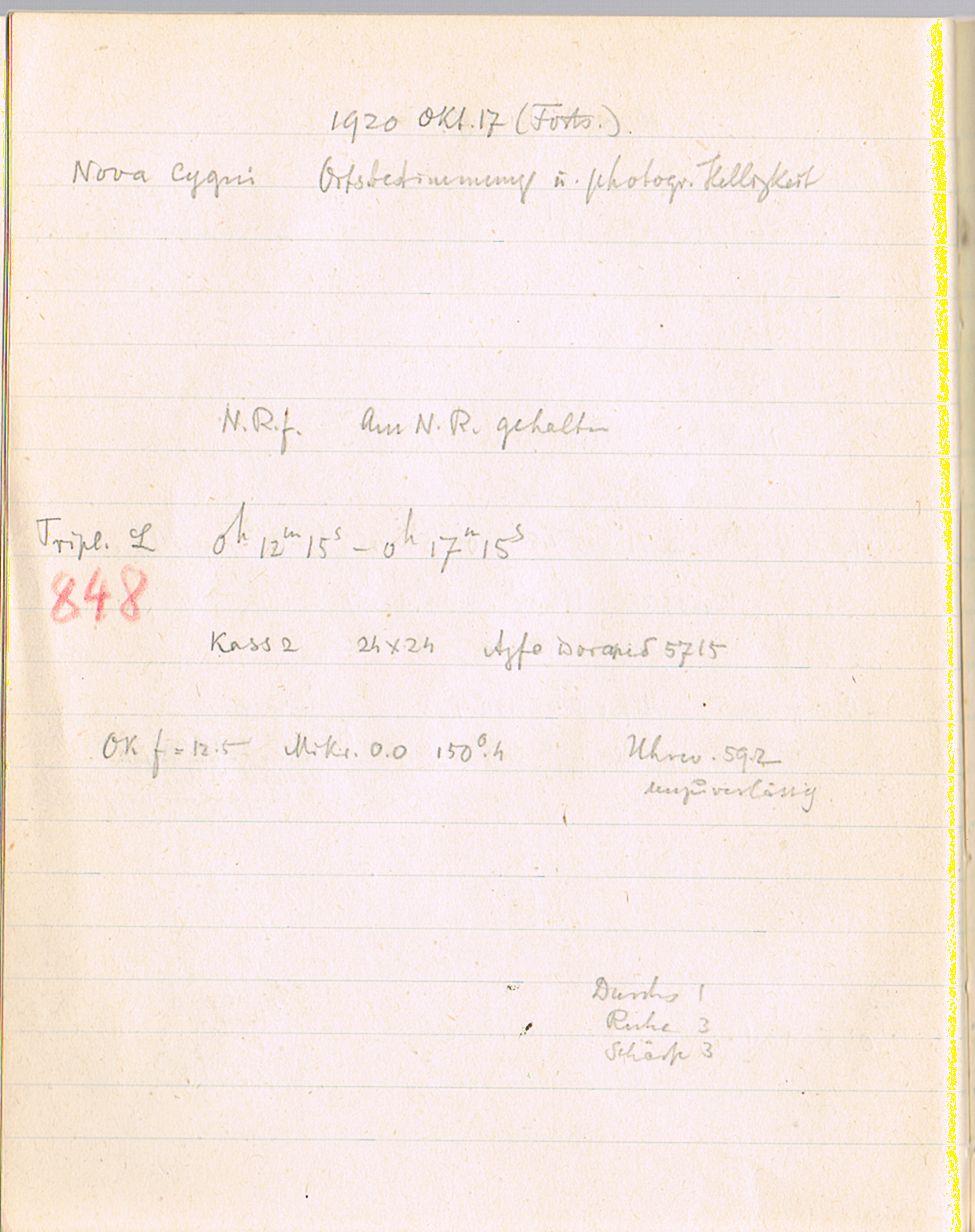 1920 Okt. 17 (Forts.).
Nova Cygni Ortsbestimmung u. photogr. Helligkeit
N.R.f. Am N.R. gehalten
Tripl. L 0h 12m 15s - 0h 17m 15s
848
Kass 2 24x24 Agfa Isorapid 5715
OK f = 12.5 Mikr. 0.0 150°.4 Uhrw. 59.2
unzuverlässig
Durchs 1
Ruhe 3
Schärfe 3